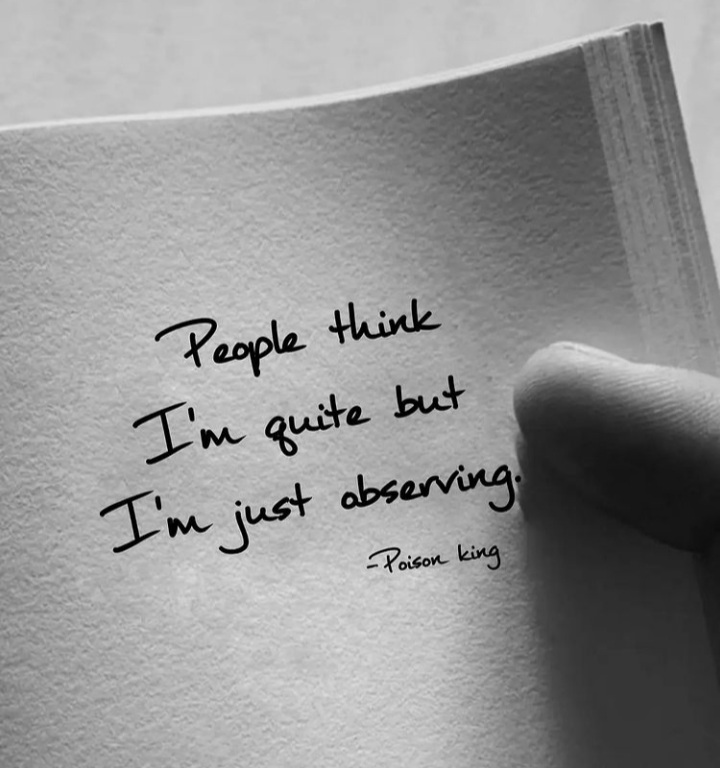 People think
I'm quite but
I'm just observing.
-Poison king